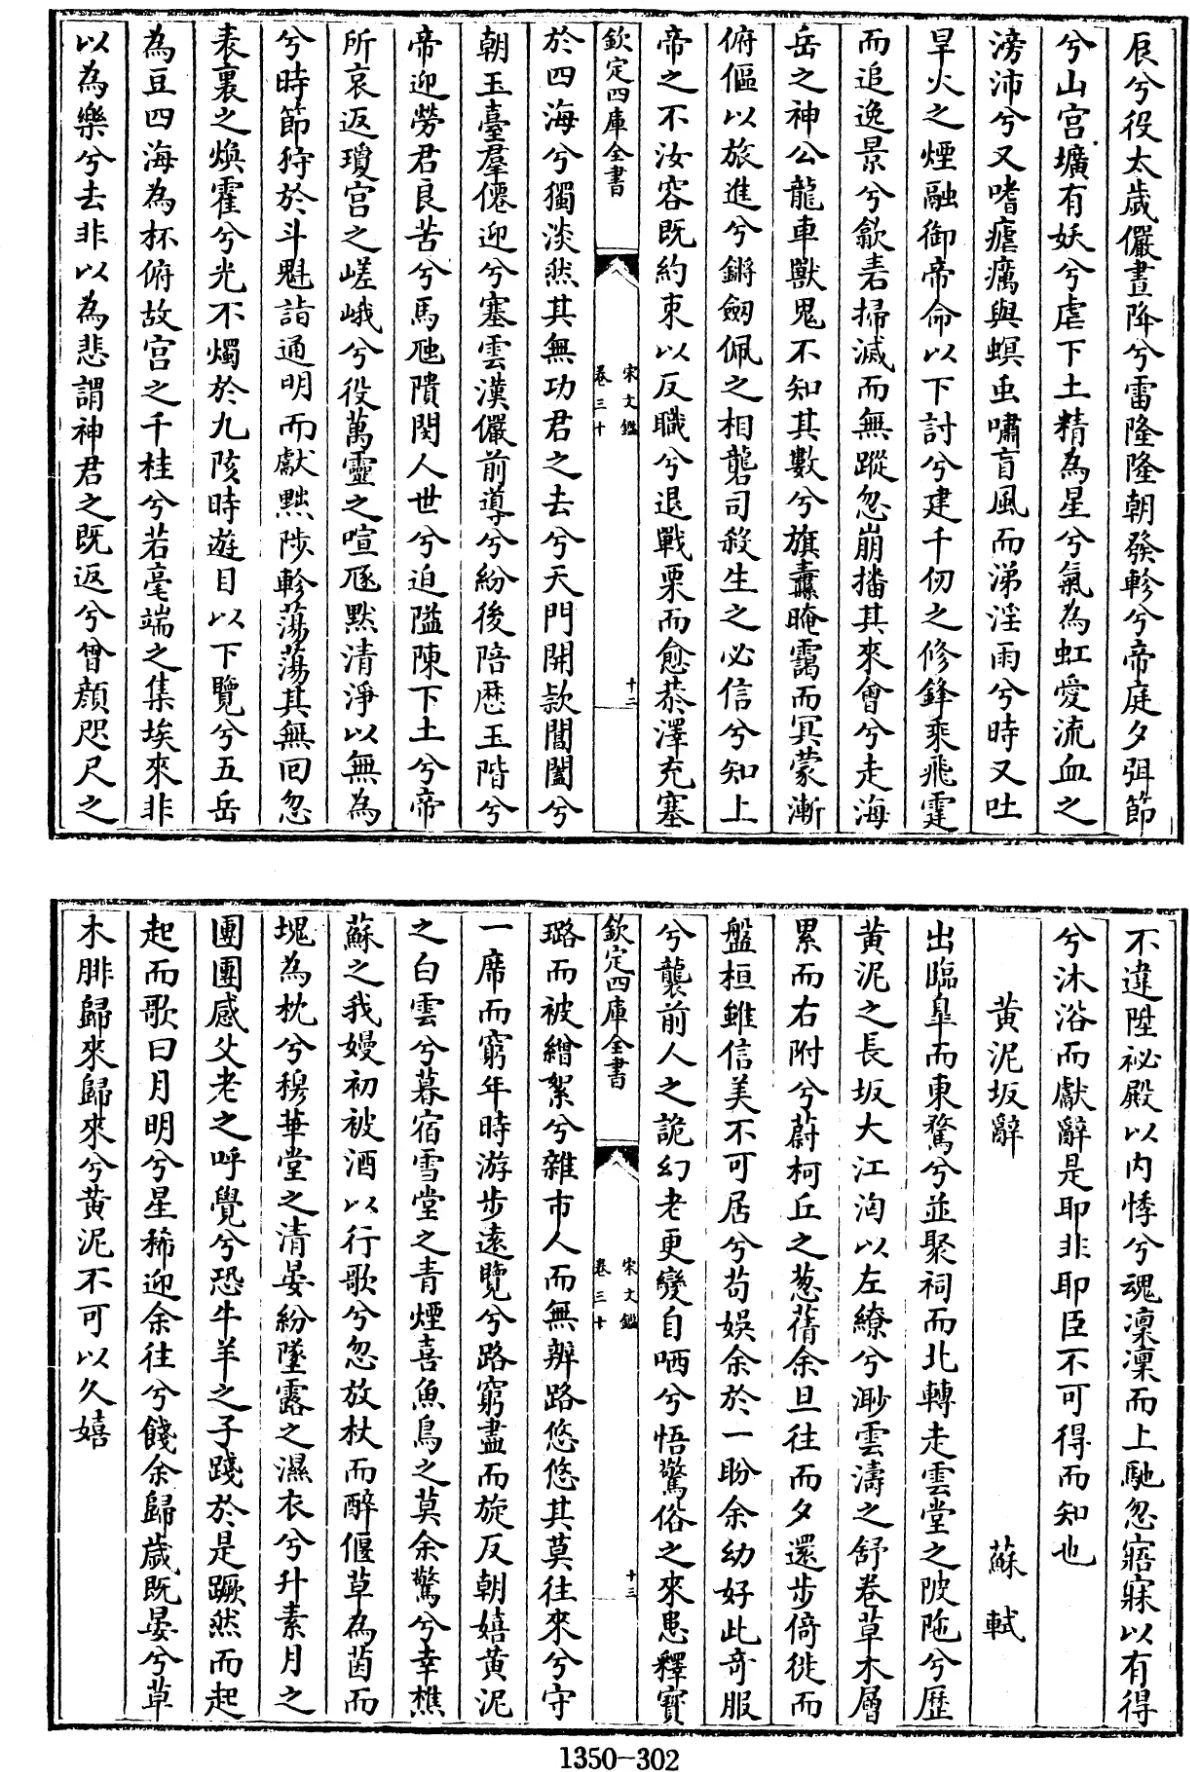 辰兮役太歲儼晝降兮雷隆隆朝發軫兮帝庭夕弭節
兮山宫壙有妖兮虐下土精為星兮氣為虹愛流血之
滂沛兮又嗜瘧癘與螟虫嘯盲風而涕淫雨兮時又吐
旱火之煙融御帝命以下討兮建千仞之修鋒乘飛霆
而追逸景兮歙砉掃滅而無蹤忽崩播其來會兮走海
岳之神公龍車獸鬼不知其數兮旗纛晻靄而冥蒙漸
俯傴以旅進兮鏘劒佩之相礱司殺生之必信兮知上
帝之不汝容既約束以反職兮退戰栗而愈恭澤充塞
欽定四庫全書
宋文鑑
卷三十
十二
於四海兮獨淡然其無功君之去兮天門開款閶闔兮
朝玉臺羣僊迎兮塞雲漢儼前導兮紛後陪歴玉階兮
帝迎勞君良苦兮馬虺隤閔人世兮迫隘陳下土兮帝
所哀返瓊宫之嵯峨兮役萬靈之喧豗黙清淨以無為
兮時節狩於斗魁詣通明而獻黜陟軫蕩蕩其無囘忽
表裏之煥霍兮光不燭於九陔時遊目以下覽兮五岳
為豆四海為杯俯故宫之千柱兮若毫端之集埃來非
以為樂兮去非以為悲謂神君之既返兮曾顔咫尺之
不違陞祕殿以内悸兮魂凛凛而上馳忽寤寐以有得
兮沐浴而獻辭是耶非耶臣不可得而知也
黄泥坂辭 蘇軾
出臨皐而東騖兮並聚祠而北轉走雲堂之陂陁兮歷
黄泥之長坂大江洶以左繚兮渺雲濤之舒卷草木層
累而右附兮蔚柯丘之葱蒨余旦往而夕還步倚徙而
盤桓雖信美不可居兮苟娱余於一盼余幼好此奇服
兮襲前人之詭幻老更變自哂兮悟驚俗之來患釋寳
欽定四庫全書
宋文鑑
卷三十
十三
璐而被繒絮兮雜市人而無辨路悠悠其莫往來兮守
一席而窮年時游步逺覽兮路窮盡而旋反朝嬉黄泥
之白雲兮暮宿雪堂之青煙喜魚鳥之莫余驚兮幸樵
蘇之我嫚初被酒以行歌兮忽放杖而醉偃草為茵而
塊為枕兮穆華堂之清晏紛墜露之濕衣兮升素月之
團團感父老之呼覺兮恐牛羊之予踐於是蹶然而起
起而歌曰月明兮星稀迎余往兮餞余歸歲既晏兮草
木腓歸來歸來兮黄泥不可以久嬉
1350-302